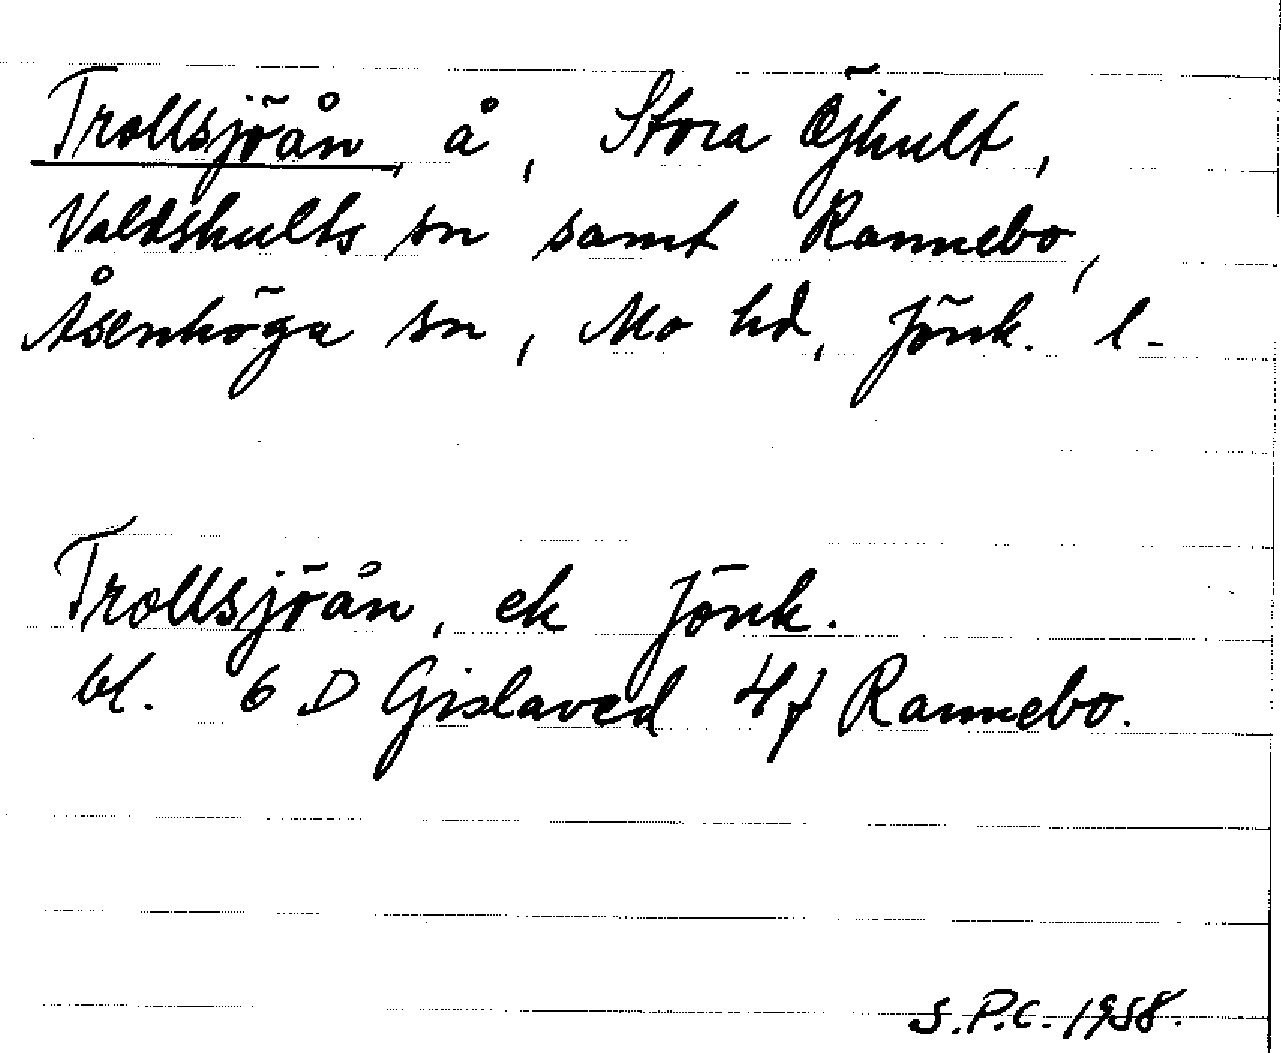 Trollsjöån, å, Stora Öjhult,
Valdshults sn samt Rannebo,
Åsenhöga sn, Mo hd, Jönk. l.
Trollsjöån, ek Jönk.
bl. 6 D Gislaved 4 f Rannebo.
S.P.C. 1958.